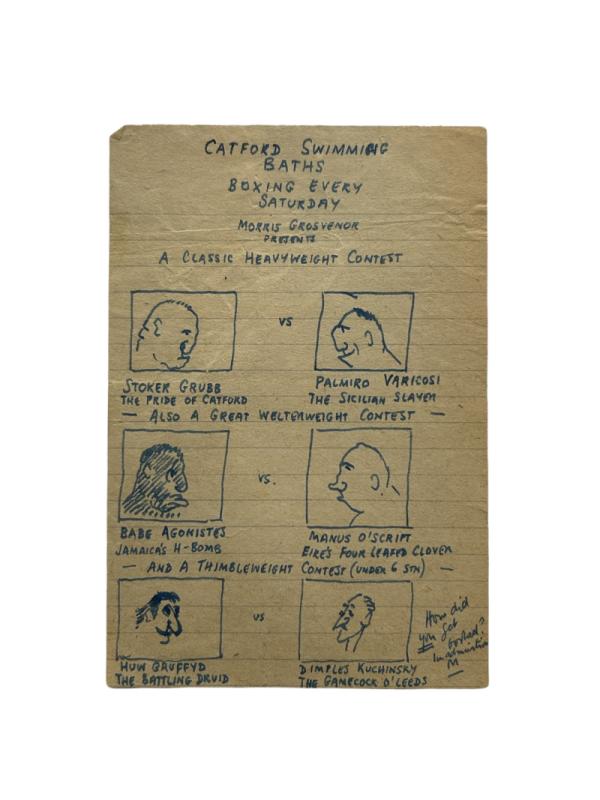 CATFORD SWIMMING
BATHS
BOXING EVERY
SATURDAY
MORRIS GROSVENOR
PRESENTS
A CLASSIC HEAVYWEIGHT CONTEST
VS
STOKER GRUBB
THE PRIDE OF CATFORD
PALMIRO VARICOSI
THE SICILIAN SLAYER
— ALSO A GREAT WELTERWEIGHT CONTEST —
VS.
BABE AGONISTES
JAMAICA'S H-BOMB
MANUS O'SCRIPT
EIRE'S FOUR LEAFED CLOVER
— AND A THIMBLEWEIGHT CONTEST (UNDER 6 STN) —
VS
HUW GRUFFYD
THE BATTLING DRUID
DIMPLES KUCHINSKY
THE GAMECOCK O'LEEDS
How did
you get
M